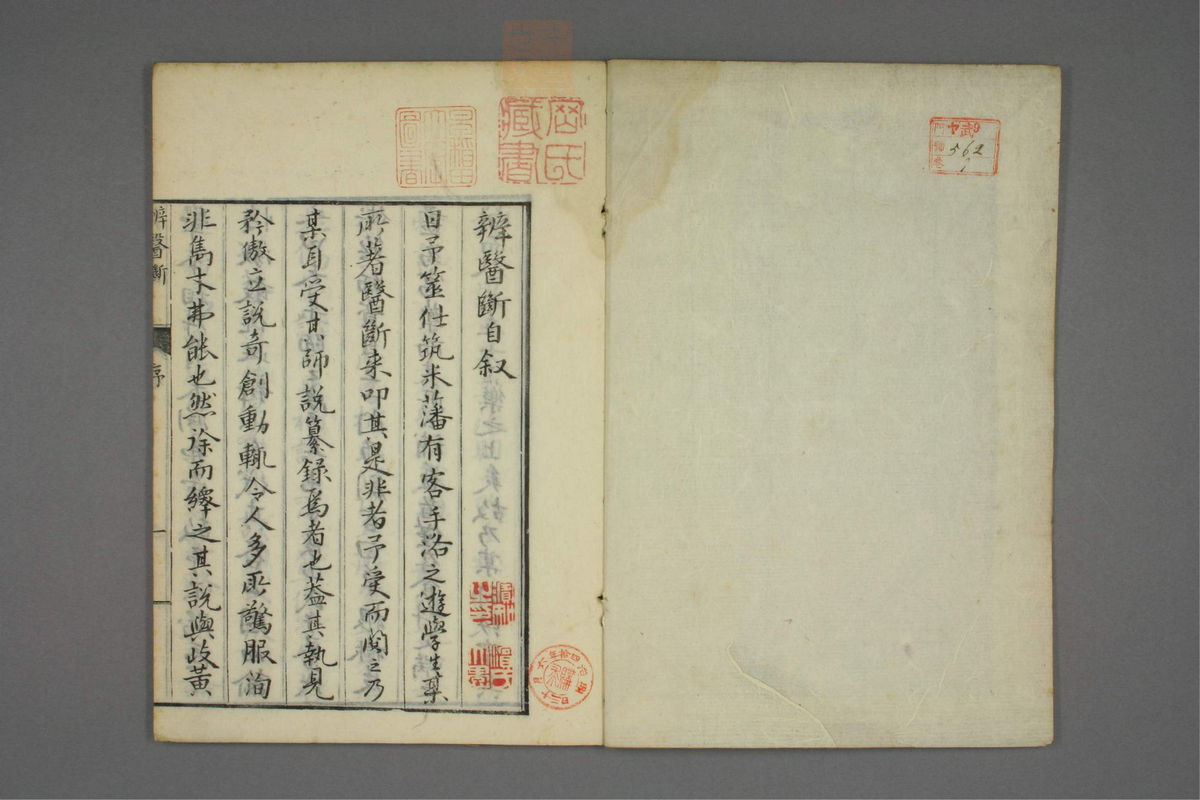 辨醫斷自叙
日予筮仕筑米藩有客手洛之遊學生某
所著醫斷来叩其是非者予受而閲之乃
某自受其師說纂録爲者也蓋其執見
矜傲立說奇創動輒令人多所驚服洵
非雋才弗能也然徐而繹之其說與歧黃
辨醫斷
序
藏書
圖書
562